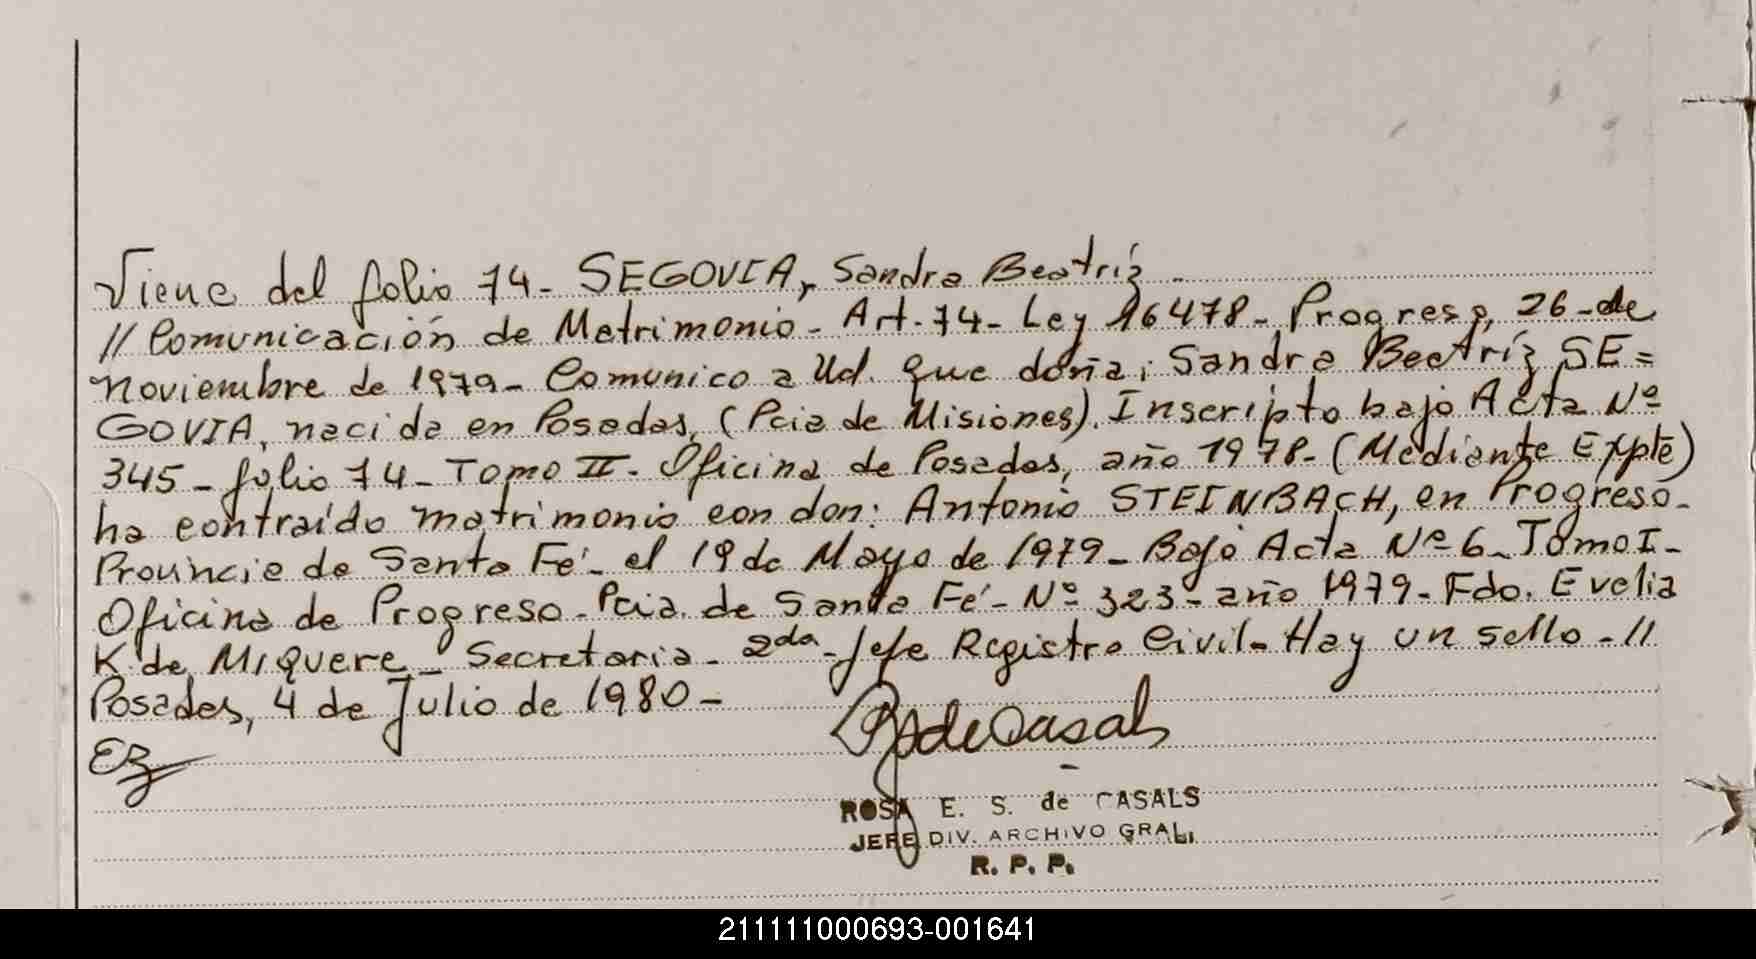 Viene del folio 74- SEGOVIA, Sandra Beatríz
// Comunicación de Matrimonio- Art. 74- Ley 16478- Progreso, 26-de
noviembre de 1979- Comunico a Ud. que doña; Sandra Beatríz SE=
GOVIA, nacida en Posadas, (Pcia de Misiones). Inscripto bajo Acta Nº
345- folio 74- Tomo II- Oficina de Posadas, año 1978- (Mediante Expte)
ha contraído matrimonio con don: Antonio STEINBACH, en Progreso-
Provincia de Santa Fé- el 19 de Mayo de 1979- Bajo Acta Nº 6- Tomo I-
Oficina de Progreso- Pcia. de Santa Fé- Nº 323- año 1979- Fdo. Evelia
K de Miquere- Secretaria- 2da- Jefe Registro Civil- Hay un sello- //
Posadas, 4 de Julio de 1980-
ROSA E. S. de CASALS
JEFE DIV. ARCHIVO GRAL.
R. P. P.
211111000693-001641